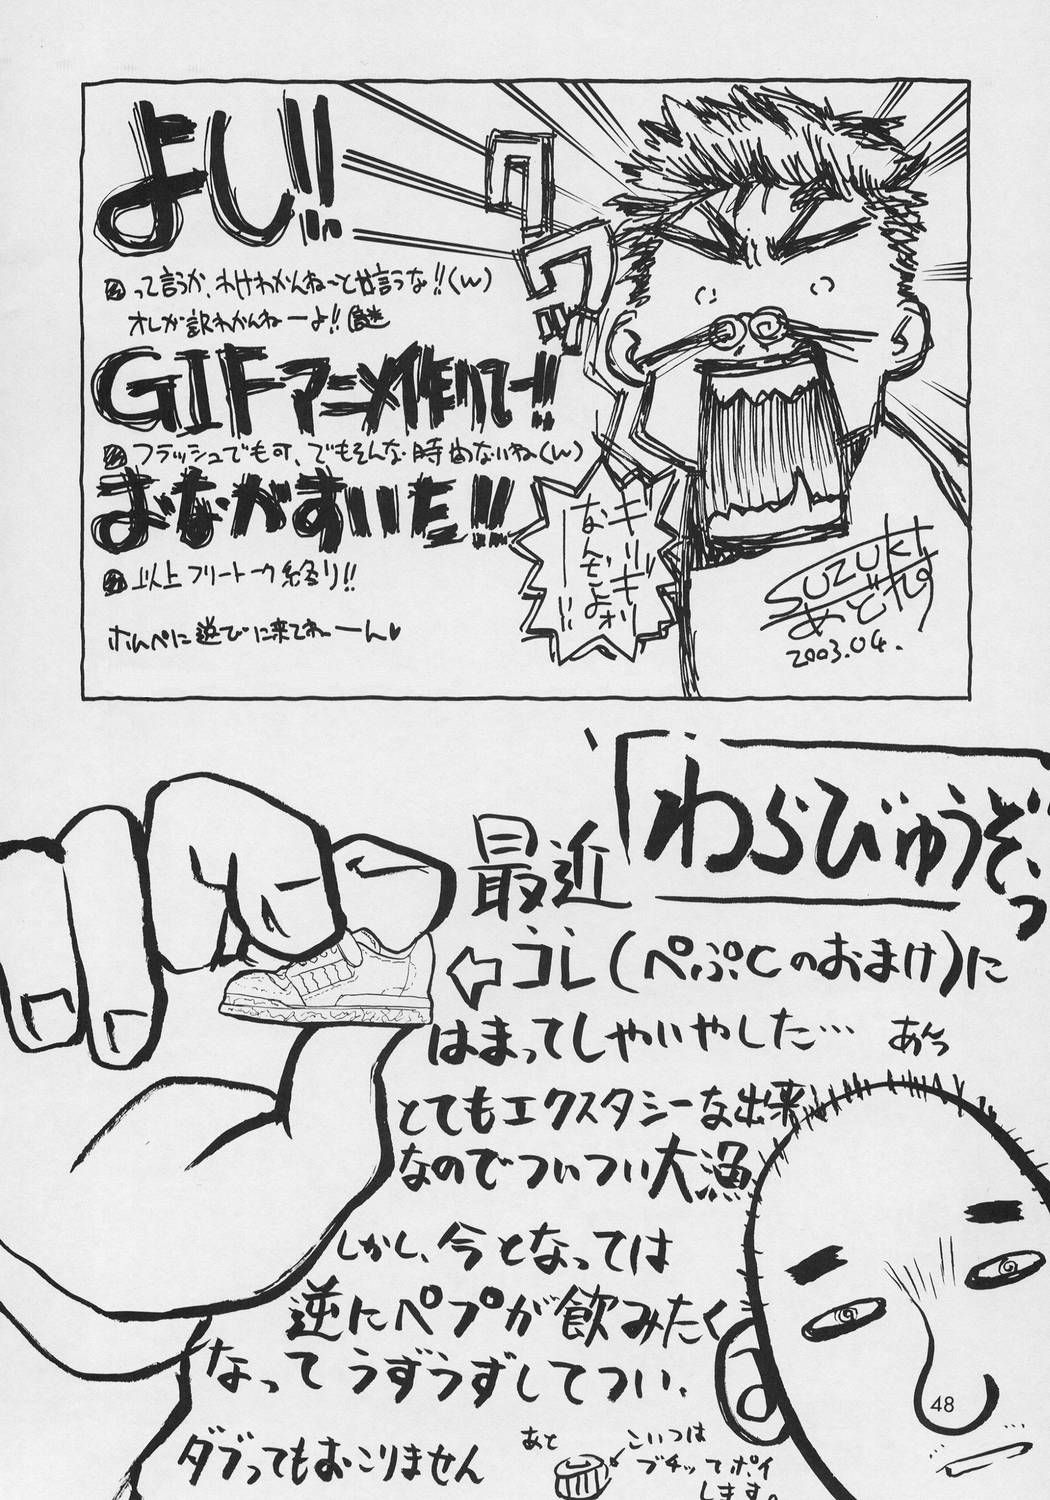 よし!!
って言うか、わけわかんね〜とか言うな!!(w)
オレが訳わかんねーよ!!謎
GIFアニメ作りてー!!
フラッシュでも可、でもそんな時間ないね(w)
おながすいた!!
以上フリートーク終り!!
ホムペに遊びに来てねーーん♥
クワッ
ギリギリ
なんだよォ
ーー!!
SUZUKI
あどれす
2003.04.
「わらびゅうぞっ
最近
⇦コレ(ペプCのおまけ)に
はまってしやいやした…
あんっ
とてもエクスタシーな出来
なのでついつい大漁
しかし、今となっては
逆にペプが飲みたく
なってうずうずしてつい、
ダブってもおこりません
あと
こいつは
ブチッてポイ
します。
48